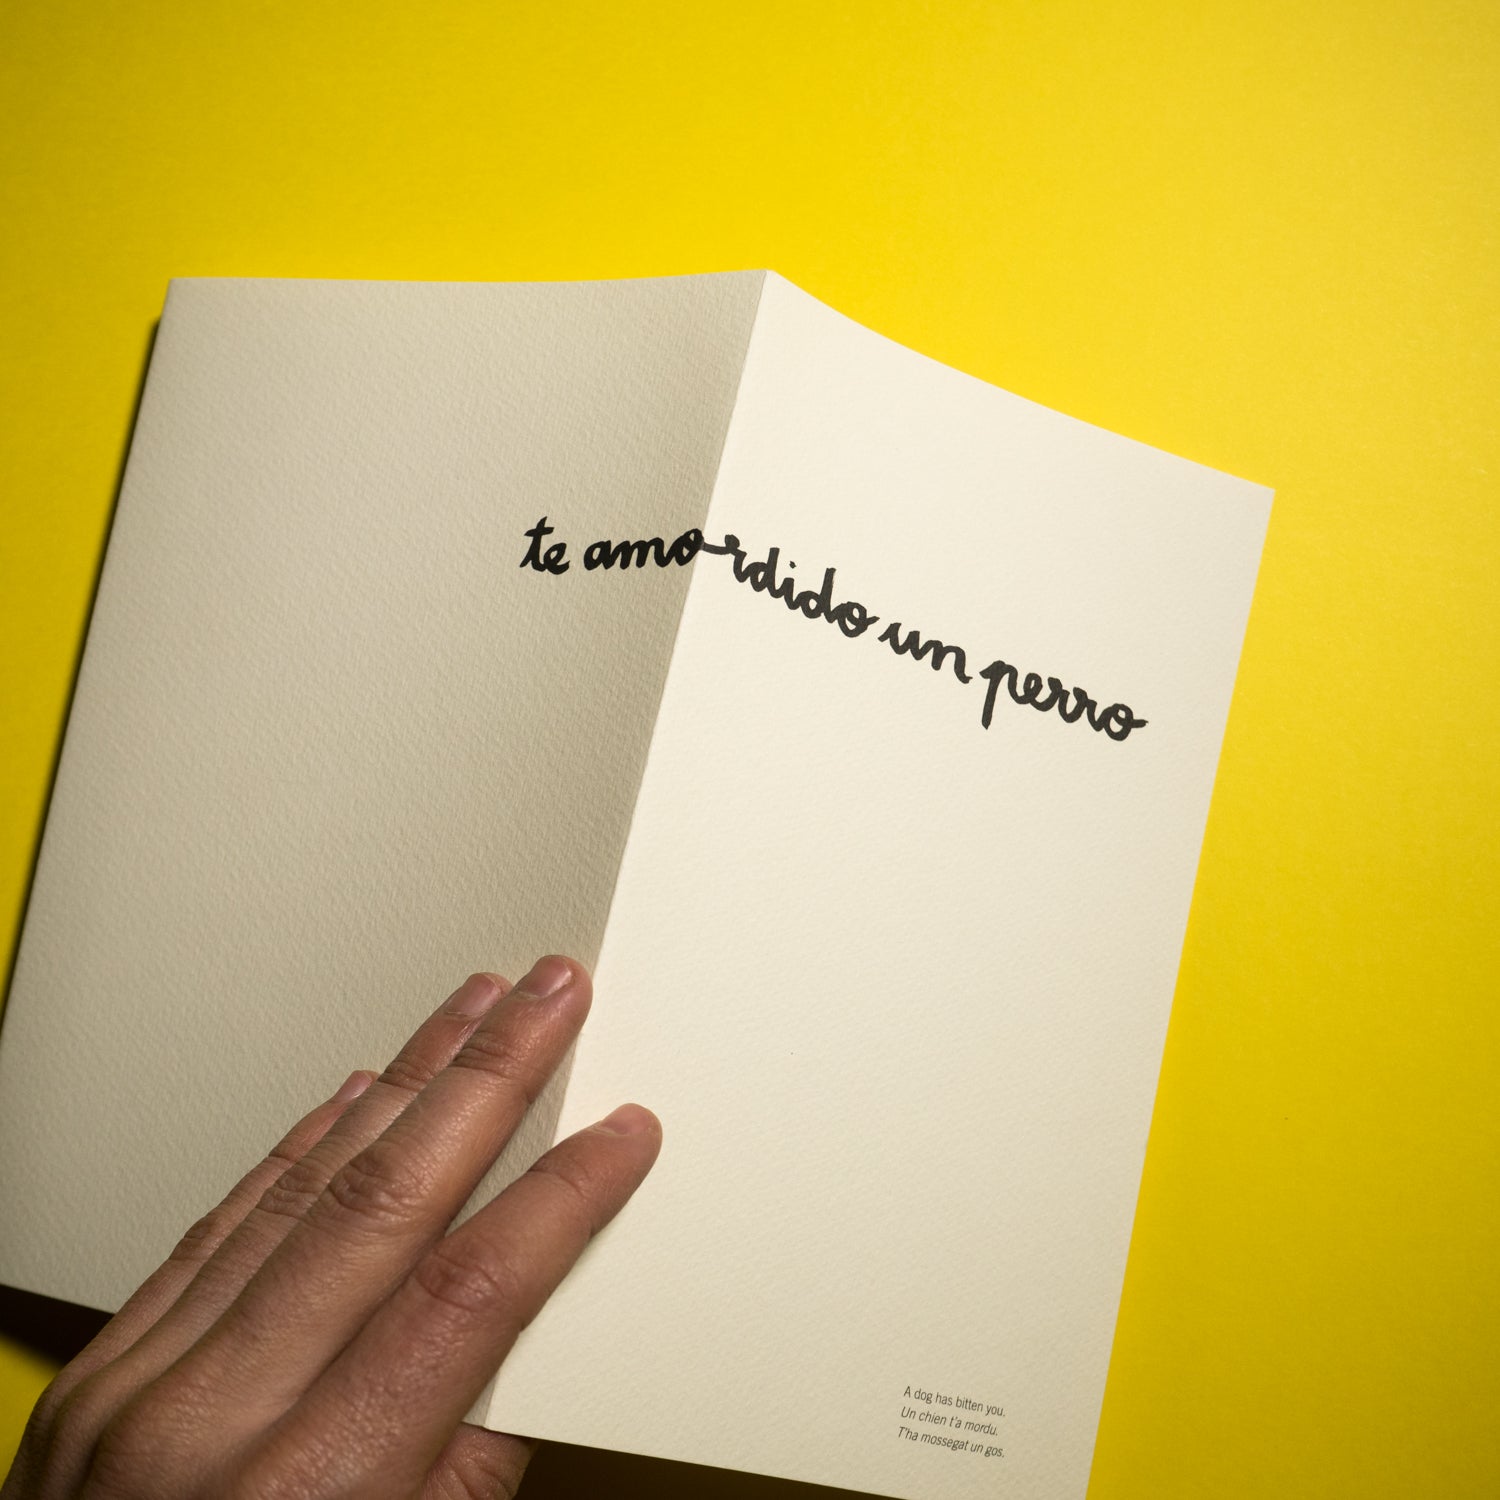 te amordido un perro
A dog has bitten you.
Un chien t'a mordu.
T'ha mossegat un gos.